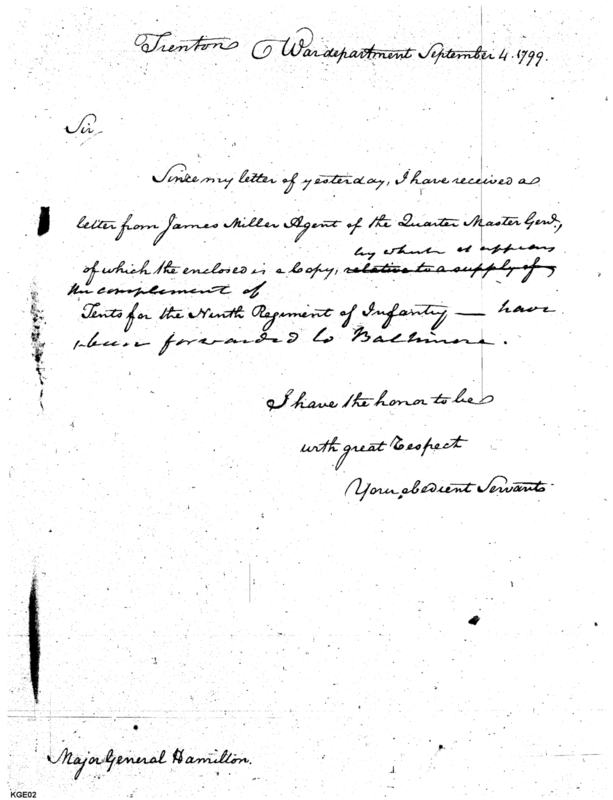 Trenton War department September 4. 1799.
Sir
Since my letter of yesterday, I have received a
letter from James Miller Agent of the Quarter Master Genl.,
by which it appears
of which the enclosed is a Copy, relative to a supply of
the complement of
Tents for the Ninth Regiment of Infantry — have
been forwarded to Baltimore.
I have the honor to be
with great respect
Your obedient Servant
Major General Hamilton.
KGE02